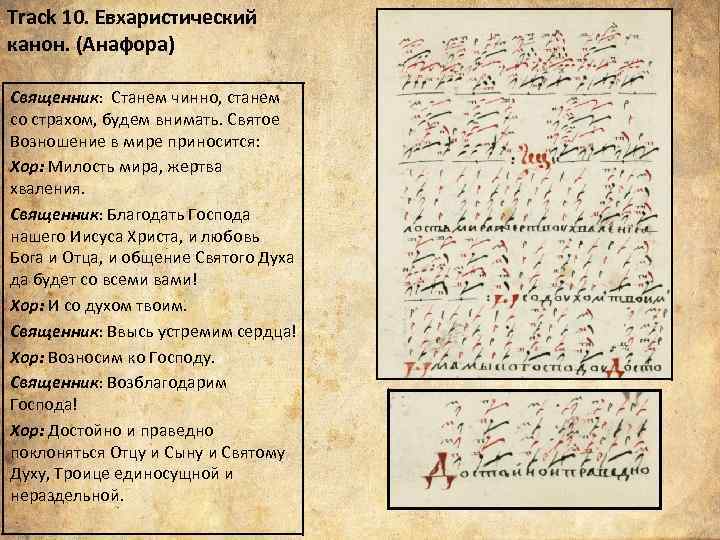 Track 10. Евхаристический
канон. (Анафора)
Священник: Станем чинно, станем
со страхом, будем внимать. Святое
Возношение в мире приносится:
Хор: Милость мира, жертва
хваления.
Священник: Благодать Господа
нашего Иисуса Христа, и любовь
Бога и Отца, и общение Святого Духа
да будет со всеми вами!
Хор: И со духом твоим.
Священник: Ввысь устремим сердца!
Хор: Возносим ко Господу.
Священник: Возблагодарим
Господа!
Хор: Достойно и праведно
поклоняться Отцу и Сыну и Святому
Духу, Троице единосущной и
нераздельной.
И со духом твоим
Достойно и праведно